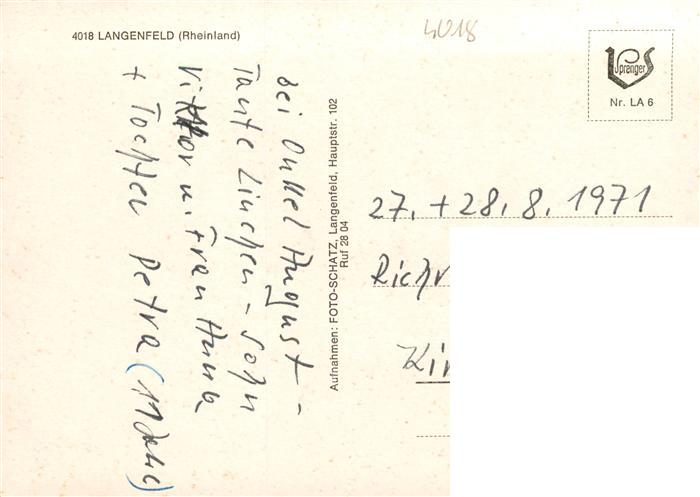 4018 LANGENFELD (Rheinland)
4018
Sprenger
Nr. LA 6
bei Onkel August –
Tante Linchen – Sohn
Viktor u. Frau Anna
+ Tochter Petra (11 Jahre)
Aufnahmen: FOTO-SCHATZ, Langenfeld, Hauptstr. 102
Ruf 28 04
27. + 28. 8. 1971